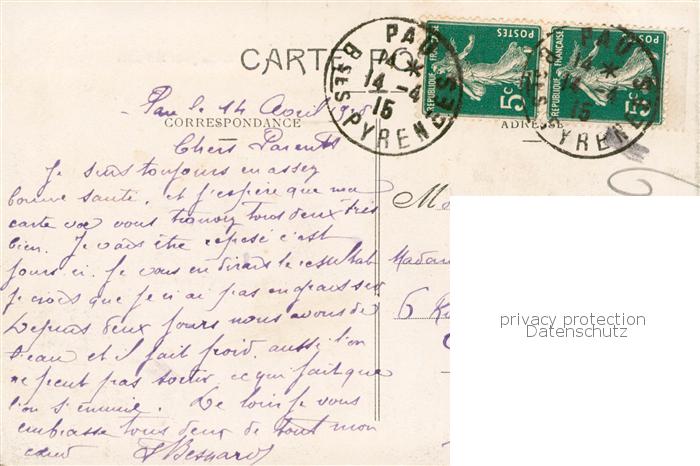 CARTE PO
PAU
14 *
14 -4
15
BSES PYRENEES
REPUBLIQUE FRANÇAISE
POSTES
5c
PAU
14 *
14 -4
15
BSES PYRENEES
REPUBLIQUE FRANÇAISE
POSTES
5c
Pau le 14 Avril 1915
CORRESPONDANCE
ADRESSE
Chers Parents
Je suis toujours en assez
bonne santé, et j'espère que ma
carte va vous trouvez tous deux très
bien. Je vais être reposé c'est
jours ci. Je vous en dirais le résultat
Je crois que je n'ai pas engraissé
Depuis deux jours nous avons de
l'eau et il fait froid, aussi l'on
ne peut pas sortir ce qui fait que
l'on s'ennuie. De loin je vous
embrasse tous deux de tout mon
cœur
Besnard
M
Madam
6
privacy protection
Datenschutz